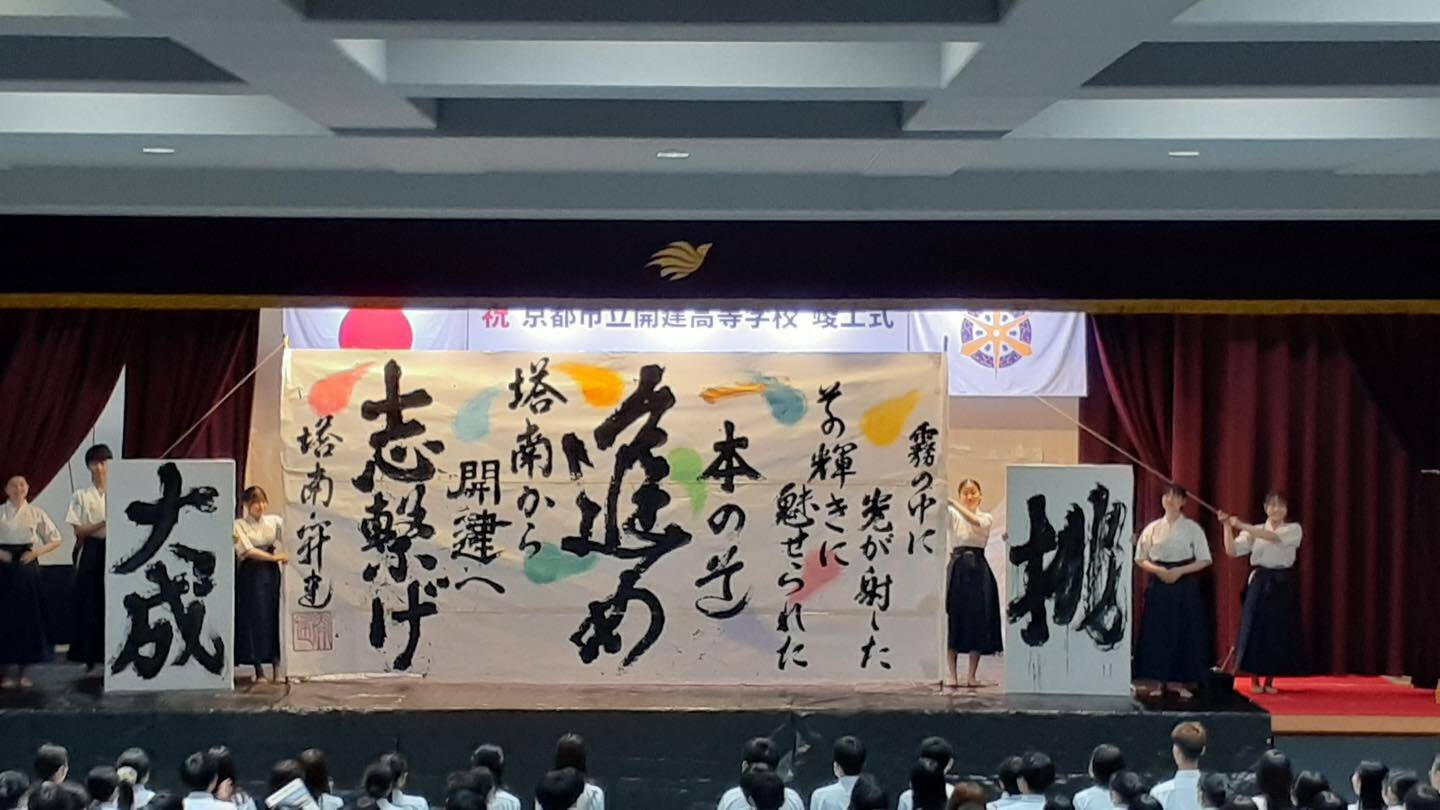 祝 京都市立開建高等学校 竣工式
挑
霧の中に
光が射した
その輝きに
魅せられた
一本の道
進め
塔南から
開建へ
志繋げ
塔南开建
大成